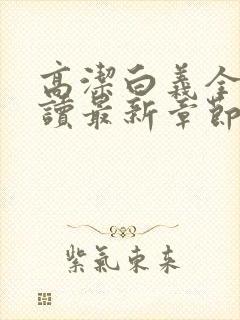 高潔白義全
讀最新章節
紫氣東來